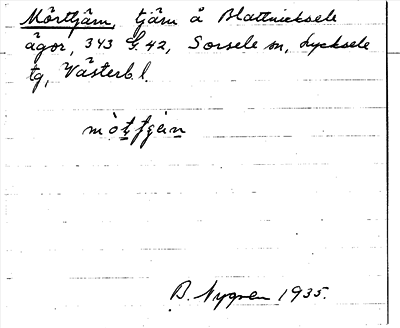 Mörttjärn, tjärn å Blattnicksele
ägor, 343 G. 42, Sorsele sn, Lycksele
tg, Västerb. l.
B. Nygren 1935.